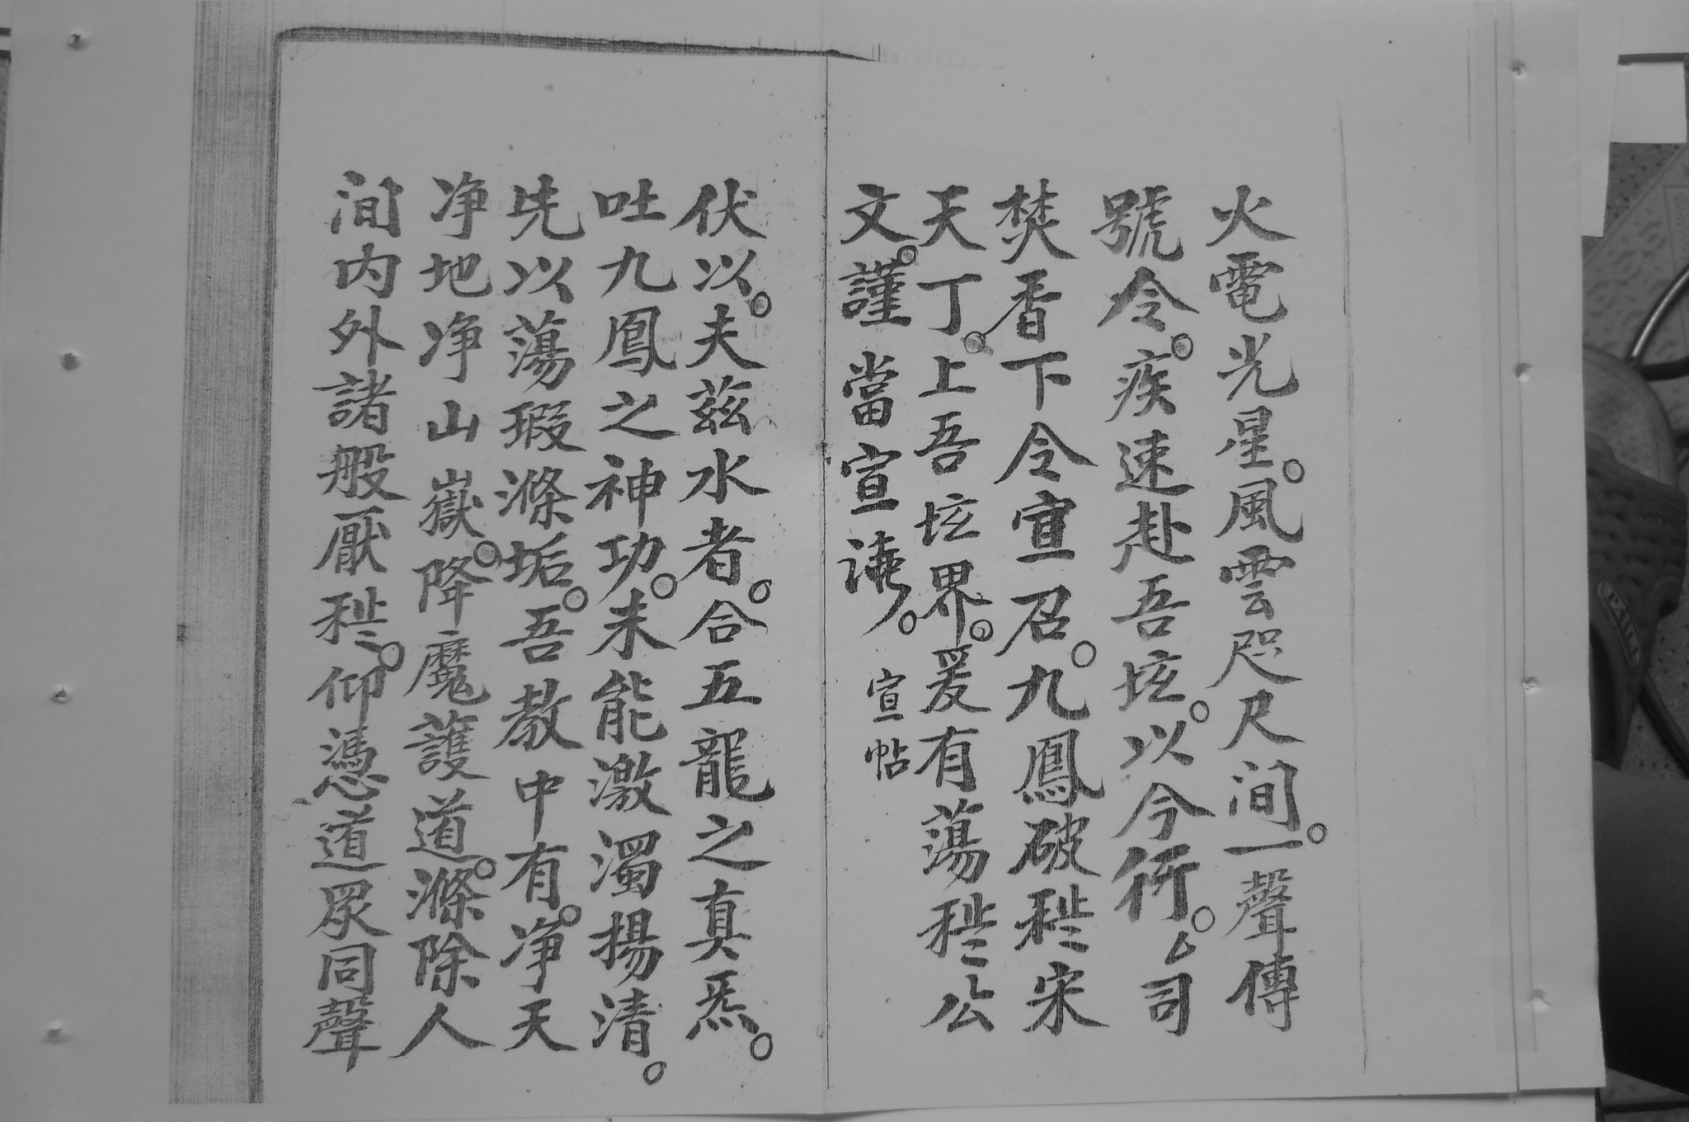 火電光星。風雲咫尺间。一聲傳
號令。疾速赴吾坛。以今行。厶司
焚香下令宣召。九鳳破秽宋
天丁。上吾坛界。爰有蕩秽公
文。謹當宣讀。宣帖
伏以。夫兹水者。合五龍之真炁。
吐九鳳之神功。未能激濁揚清。
先以蕩瑕滌垢。吾教中有。净天
净地净山嶽。降魔護道。滌除人
间内外諸般厭秽。仰憑道眾同聲